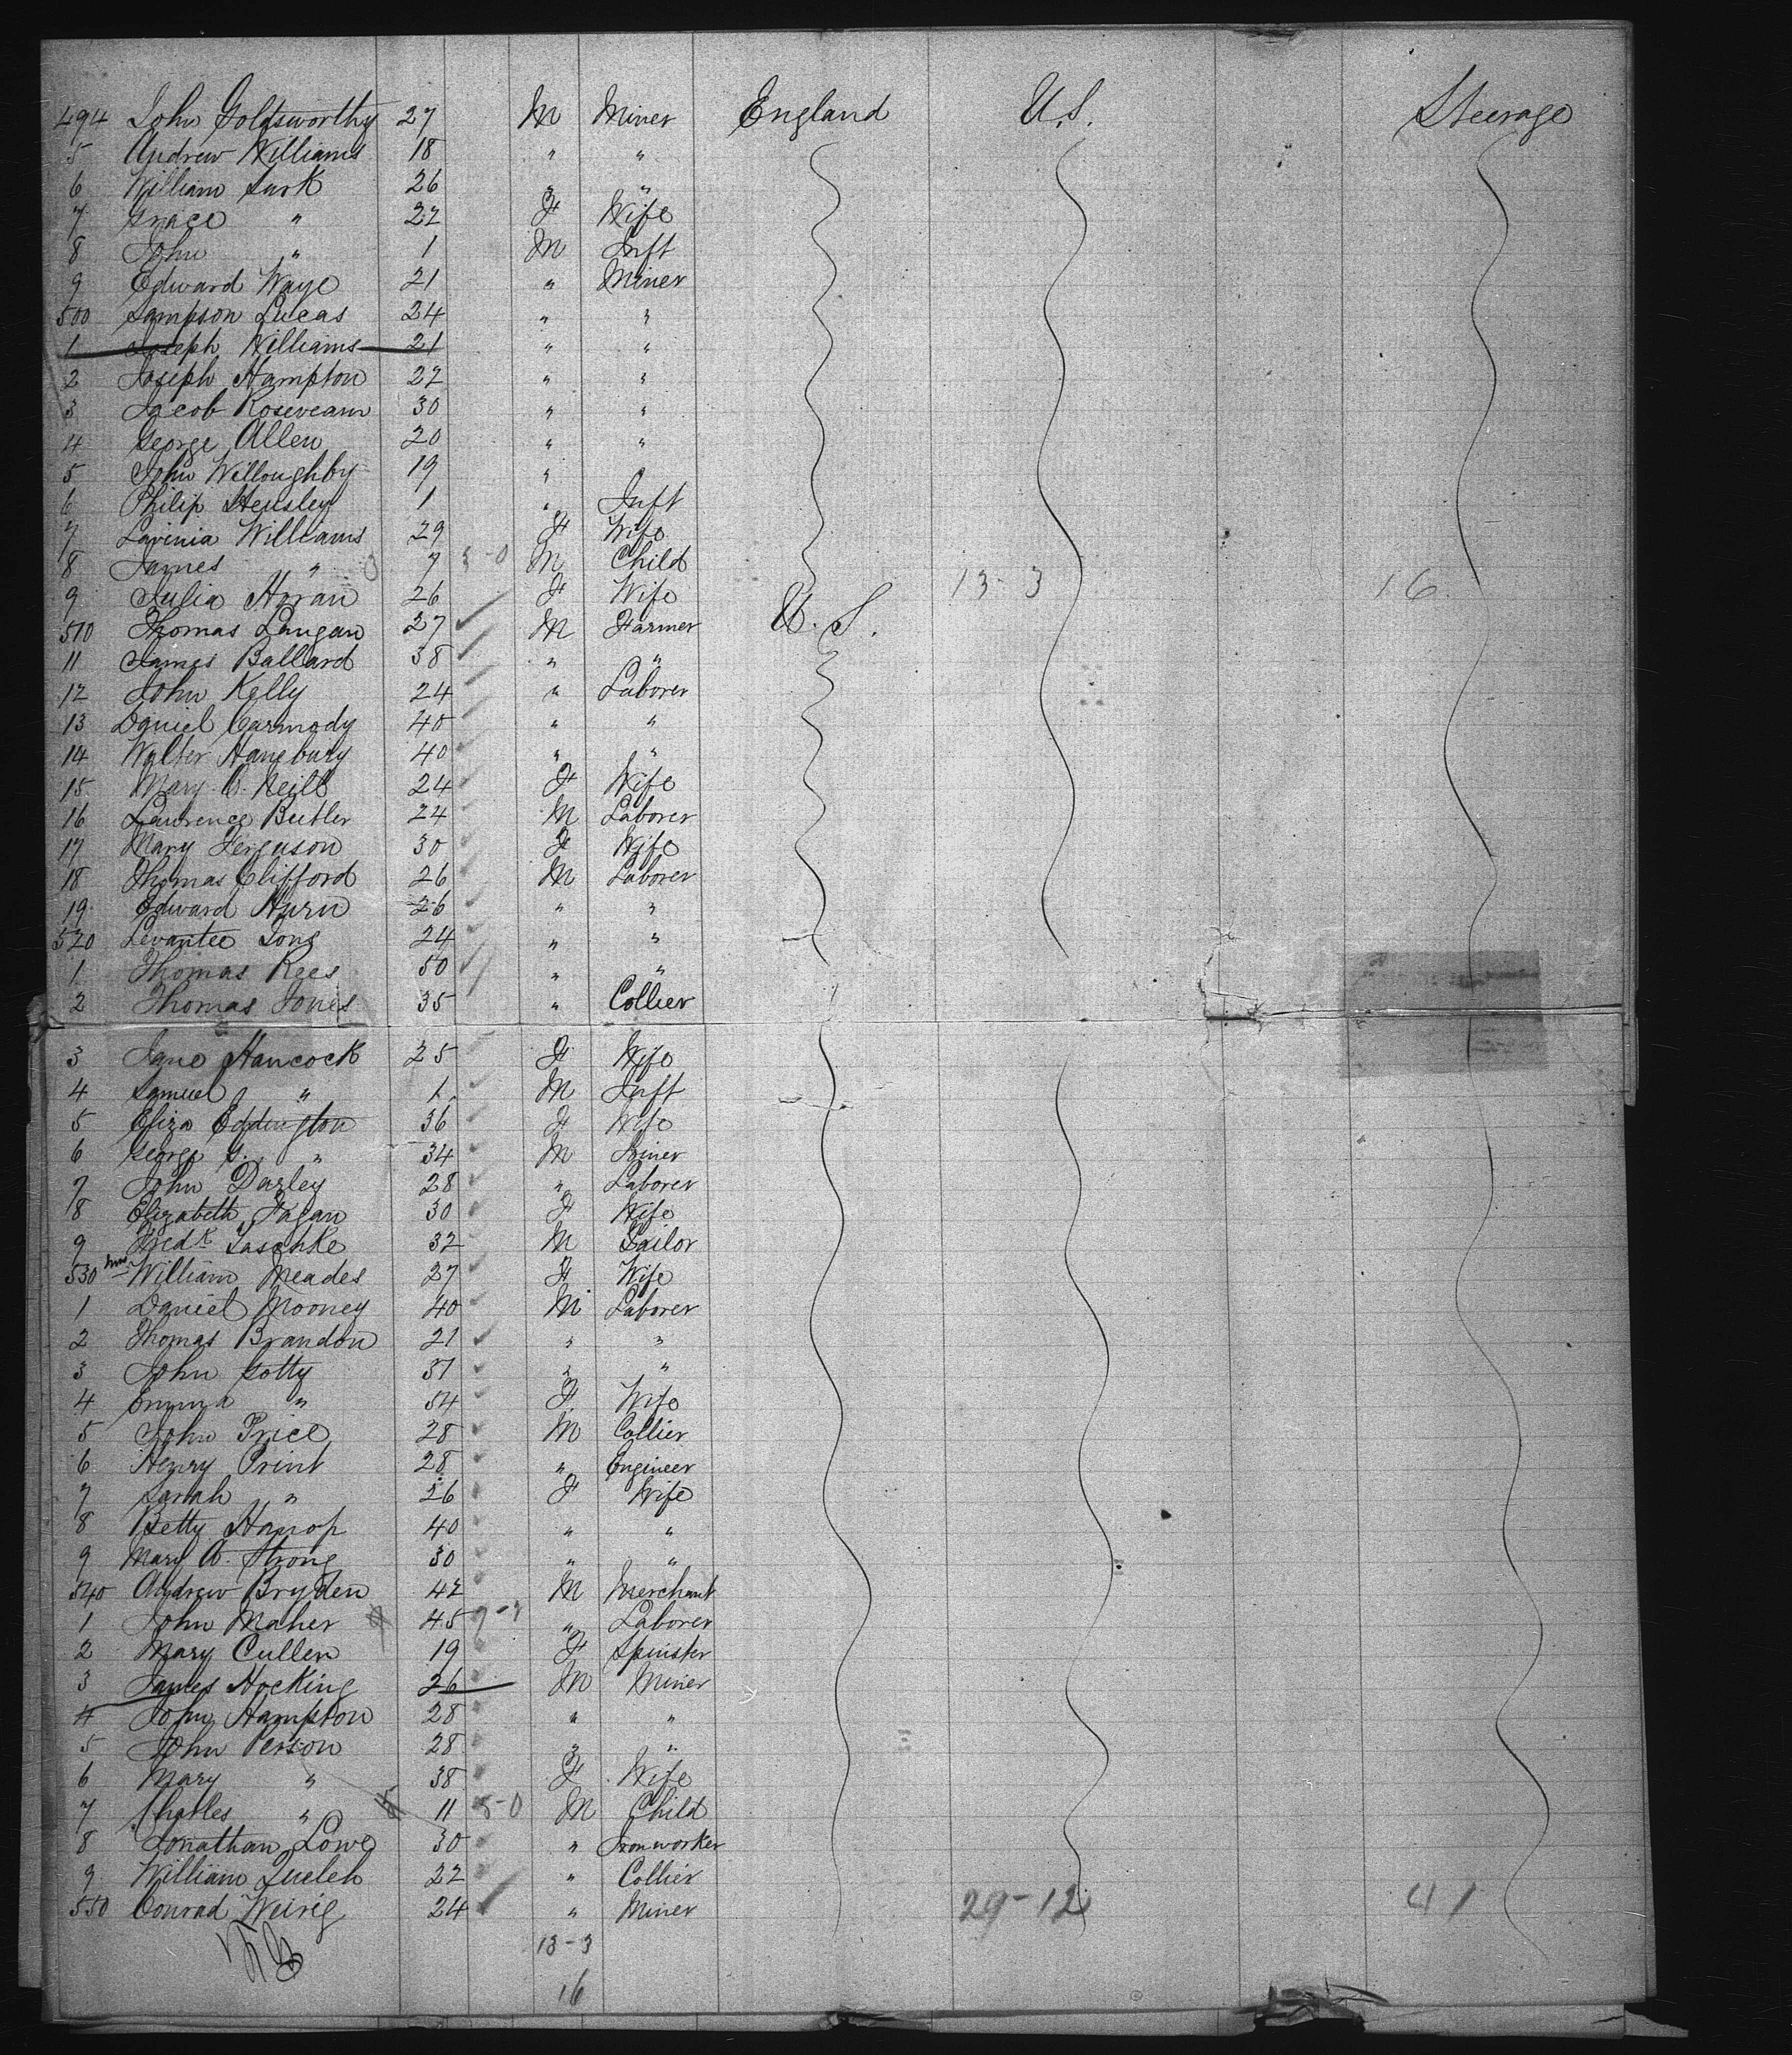 494 John Goldsworthy 27 M Miner England U.S. Steerage
5 Andrew Williams 18 " "
6 William Lark 26 " "
7 Grace " 22 F Wife
8 John " 1 M Inft
9 Edward Waye 21 " Miner
500 Sampson Lucas 24 " "
1 Joseph Williams 21 " "
2 Joseph Hampton 22 " "
3 Jacob Rosevearn 30 " "
4 George Allen 20 " "
5 John Willoughby 19 " "
6 Philip Hensley 1 " Inft
7 Lavinia Williams 29 F Wife
8 James " 7 M Child
9 Julia Horan 26 F Wife 13-3 16
510 Thomas Langan 27 M Farmer U.S.
11 James Ballard 38 " "
12 John Kelly 24 " Laborer
13 Daniel Carmody 40 " "
14 Walter Hansbury 40 " "
15 Mary O. Neill 24 F Wife
16 Lawrence Butler 24 M Laborer
17 Mary Ferguson 30 F Wife
18 Thomas Clifford 26 M Laborer
19 Edward Hurn 26 " "
520 Levantee Long 24 " "
1 Thomas Rees 50 " "
2 Thomas Jones 35 " Collier
3 Jane Hancock 25 F Wife
4 Samuel " 1 M Inft
5 Eliza Eddington 36 F Wife
6 George G. " 34 M Joiner
7 John Darley 28 " Laborer
8 Elizabeth Fagan 30 F Wife
9 Fredk Taschke 32 M Tailor
530 Mrs William Meades 27 F Wife
1 Daniel Mooney 40 M Laborer
2 Thomas Brandon 21 " "
3 John Gotty 51 " "
4 Emma " 54 F Wife
5 John Price 28 M Collier
6 Henry Print 28 " Engineer
7 Sarah " 26 F Wife
8 Betty Harrop 40 " "
9 Mary A. Strong 30 " "
540 Andrew Bryden 42 M Merchant
1 John Maher 45 " Laborer
2 Mary Cullen 19 F Spinster
3 James Hocking 26 M Miner
4 John Hampton 28 " "
5 John Person 28 " "
6 Mary " 38 F Wife
7 Charles " 11 5-0 M Child
8 Jonathan Lowe 30 " Ironworker
9 William Luelch 22 " Collier
550 Conrad Weirig 24 " Miner 29-12 41
13-3
16